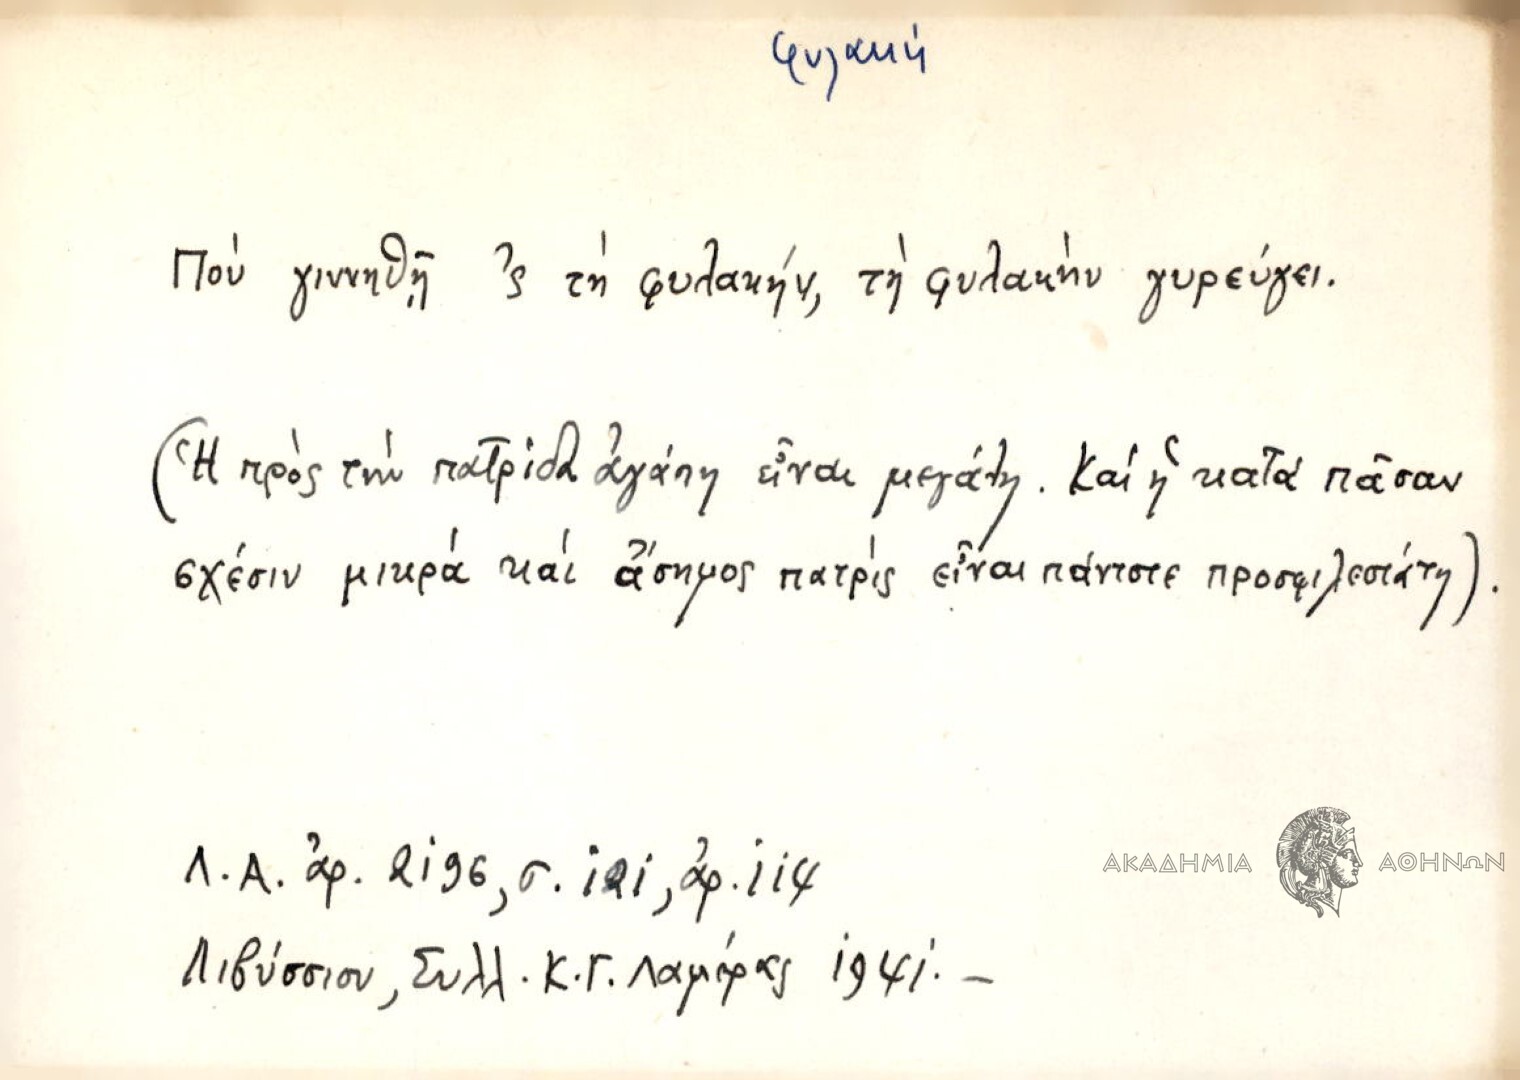 φυλακή
Ποὺ γιννηθῇ ᾿ς τὴ φυλακήν, τὴ φυλακὴν γυρεύγει.
(Ἡ πρὸς τὴν πατρίδα ἀγάπη εἶναι μεγάλη. Καί ἡ κατά πᾶσαν
σχέσιν μικρά καί ἄσημος πατρίς εἶναι πάντοτε προσφιλεστάτη).
Λ.Α. ἀρ. 2196, σ. 121, ἀρ. 114
Λιβύσσιον, Συλλ. Κ.Γ. Λαμέρας 1941. –
ΑΚΑΔΗΜΙΑ ΑΘΗΝΩΝ